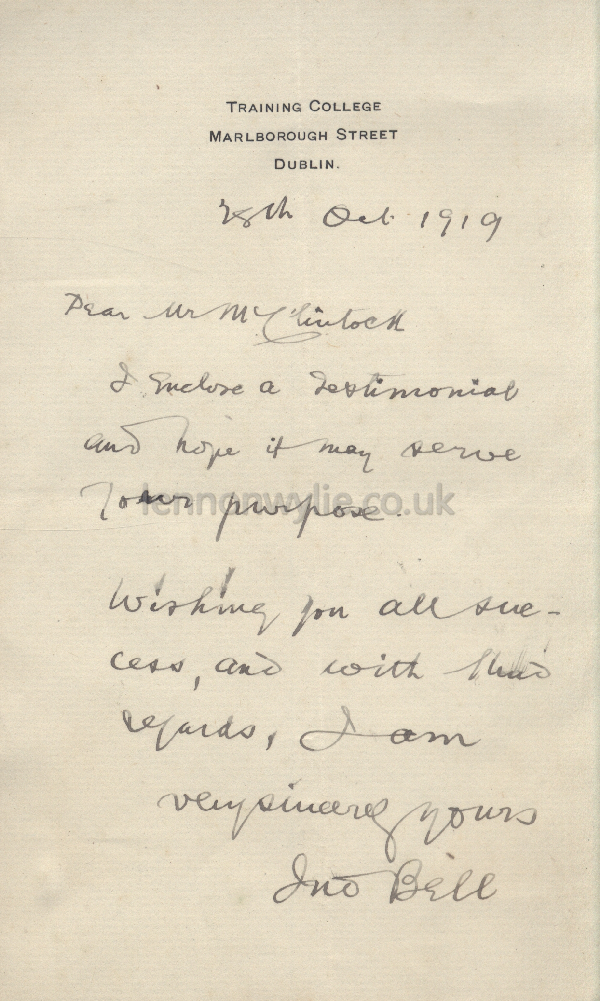 TRAINING COLLEGE
MARLBOROUGH STREET
DUBLIN.
28th Oct. 1919
Dear Mr McClintock
I Enclose a Testimonial
and hope it may serve
Your purpose.
lennonwylie.co.uk
Wishing you all suc-
cess, and with kind
regards, I am
very sincerely yours
Jno Bell